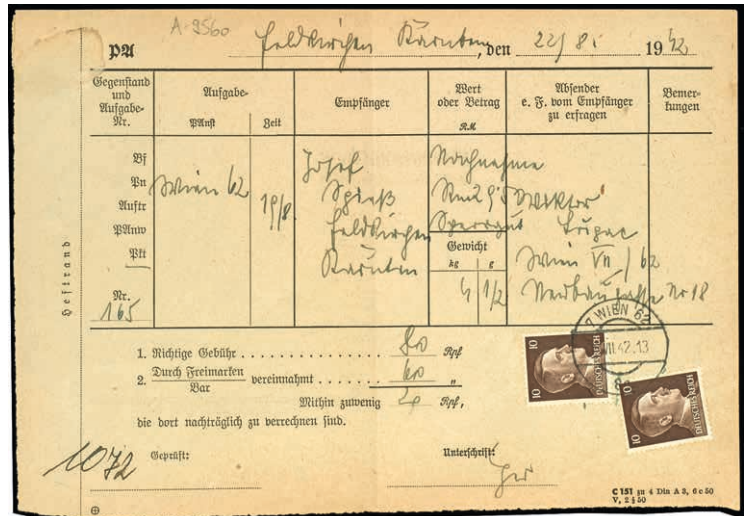 A-9560
PA Feldkirchen Kärnten, den 22/8. 1942
Gegenstand und Aufgabe-Nr.
Aufgabe-
PAnst
Zeit
Empfänger
Wert oder Betrag
R.M.
Absender e. F. vom Empfänger zu erfragen
Bemerkungen
Bf
Pn
Auftr
PAnw
Pkt
Nr.
165
Wien 62
19/8
Josef
Spieß
Feldkirchen
Kärnten
Nachnahme
Sperrgut
Gewicht
kg g
4 1/2
Wien VII / 62
Neubaugasse Nr 18
Heftrand
1. Richtige Gebühr . . . . . . . . . . 80 Rpf
2. Durch Freimarken
Bar
vereinnahmt . . . . . 60 "
Mithin zuwenig 20 Rpf,
die dort nachträglich zu verrechnen sind.
1072
Geprüft:
Unterschrift:
WIEN 62
42.13
10 DEUTSCHES REICH
10 DEUTSCHES REICH
C 151 zu 4 Din A 3, 6c 50
V, 2 § 50